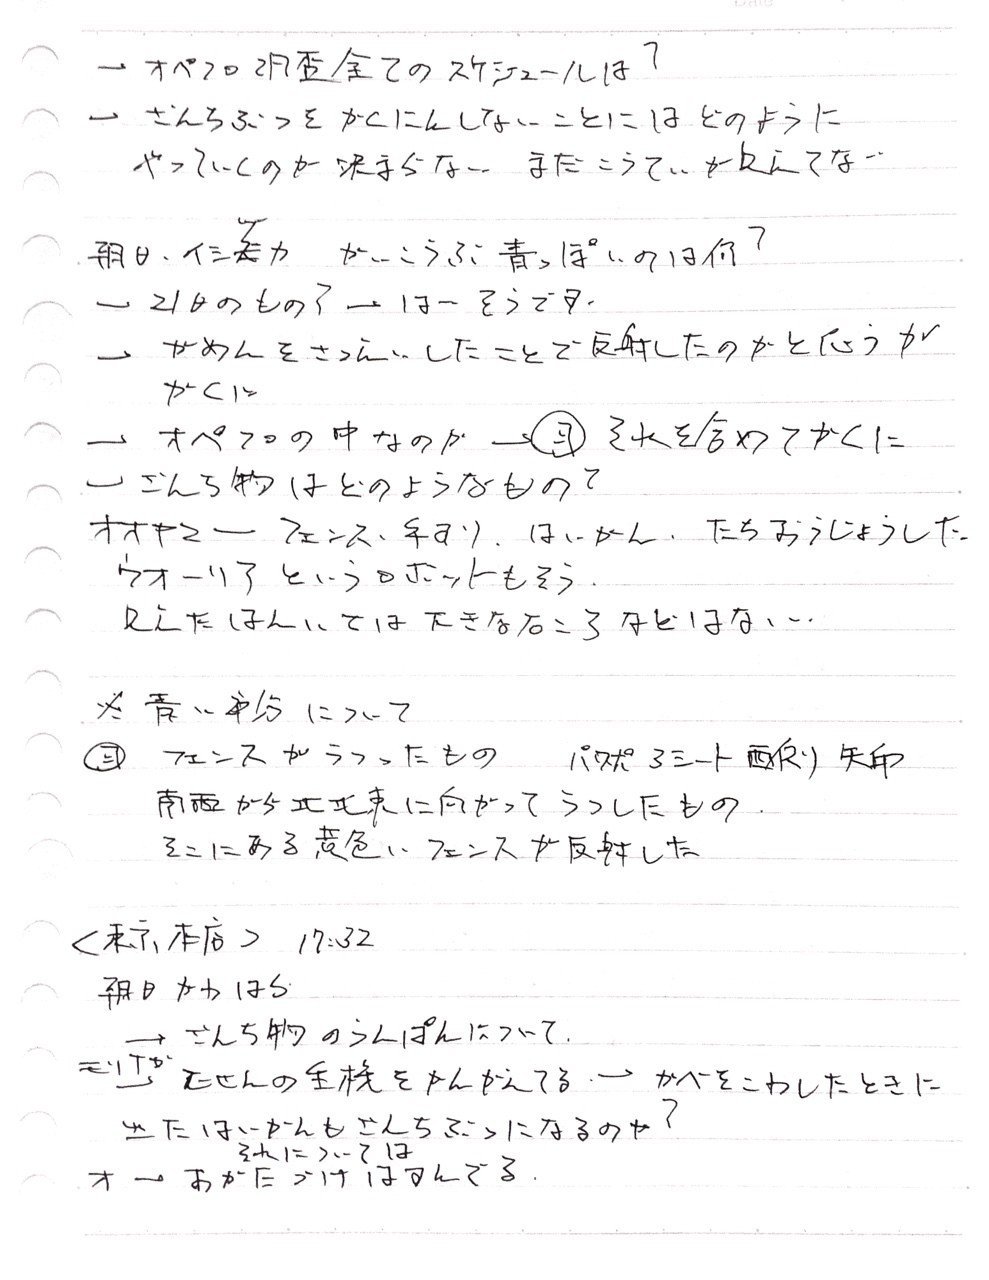 → オペフロ調査全てのスケジュールは?
→ ざんちぶつをかくにんしないことにはどのように
やっていくのか決まらない まだこうていが見えてない
朝日・ がいこうぶ 青っぽいのは何?
→ 21日のもの? → はーそうです.
→ がめんをさつえいしたことで反射したのかと思うが
かくに
→ オペフロの中なのか → ヨ それを含めてかくに
→ ざんち物はどのようなもの?
オオヤマ― フェンス、手すり、はいかん、たちおうじょうした
ウオーリアというロボットもそう.
見えたはんいでは大きなところなどはない
※ 青い部分について
ヨ フェンスがうつったもの パワポ3シート 矢印
南西から北北東に向かってうつしたもの.
そこにある黄色いフェンスが反射した
<東京本店> 17:32
朝日かわはら
→ ざんち物のうんぱんについて.
モリすが → むせんの重機をかんがえてる. → かべをこわしたときに
出たはいかんもざんちぶつになるのか?
それについては
オ → おかたづけはすんでる.